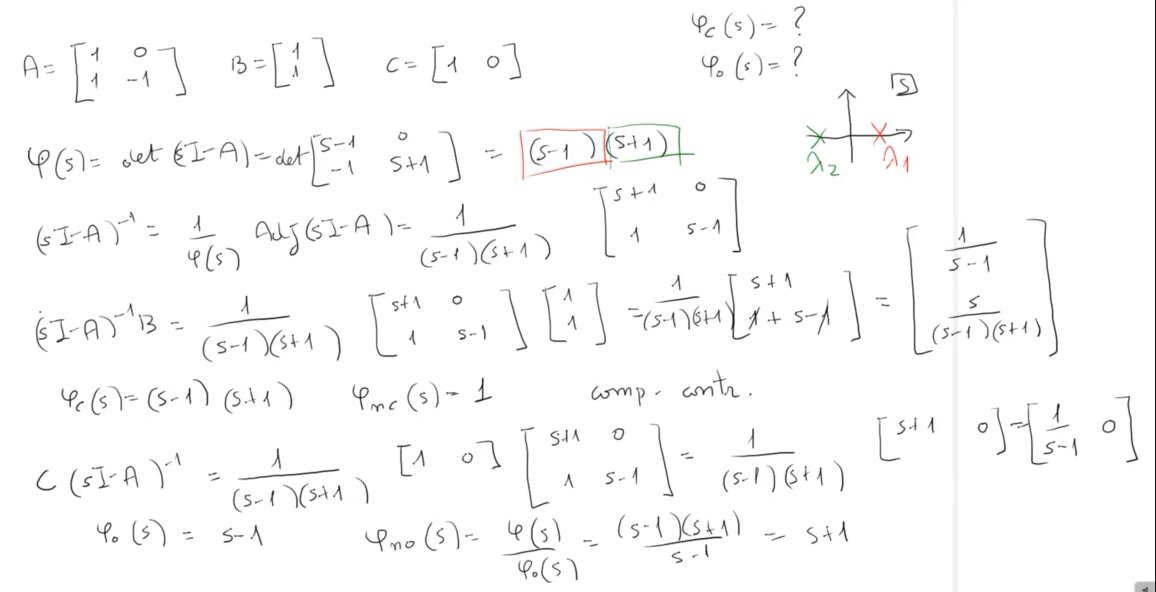 A = [1 0; 1 -1] B = [1; 1] C = [1 0] φc(s) = ?
φo(s) = ?
[s]
φ(s) = det(sI-A) = det[s-1 0; -1 s+1] = (s-1)(s+1) λ2 λ1
(sI-A)⁻¹ = 1/φ(s) Adj(sI-A) = 1/((s-1)(s+1)) [s+1 0; 1 s-1]
(sI-A)⁻¹B = 1/((s-1)(s+1)) [s+1 0; 1 s-1] [1; 1] = 1/((s-1)(s+1)) [s+1; 1+s-1] = [1/(s-1); s/((s-1)(s+1))]
φc(s) = (s-1)(s+1) φnc(s) = 1 comp. contr.
C(sI-A)⁻¹ = 1/((s-1)(s+1)) [1 0] [s+1 0; 1 s-1] = 1/((s-1)(s+1)) [s+1 0] = [1/(s-1) 0]
φo(s) = s-1 φno(s) = φ(s)/φo(s) = (s-1)(s+1)/(s-1) = s+1